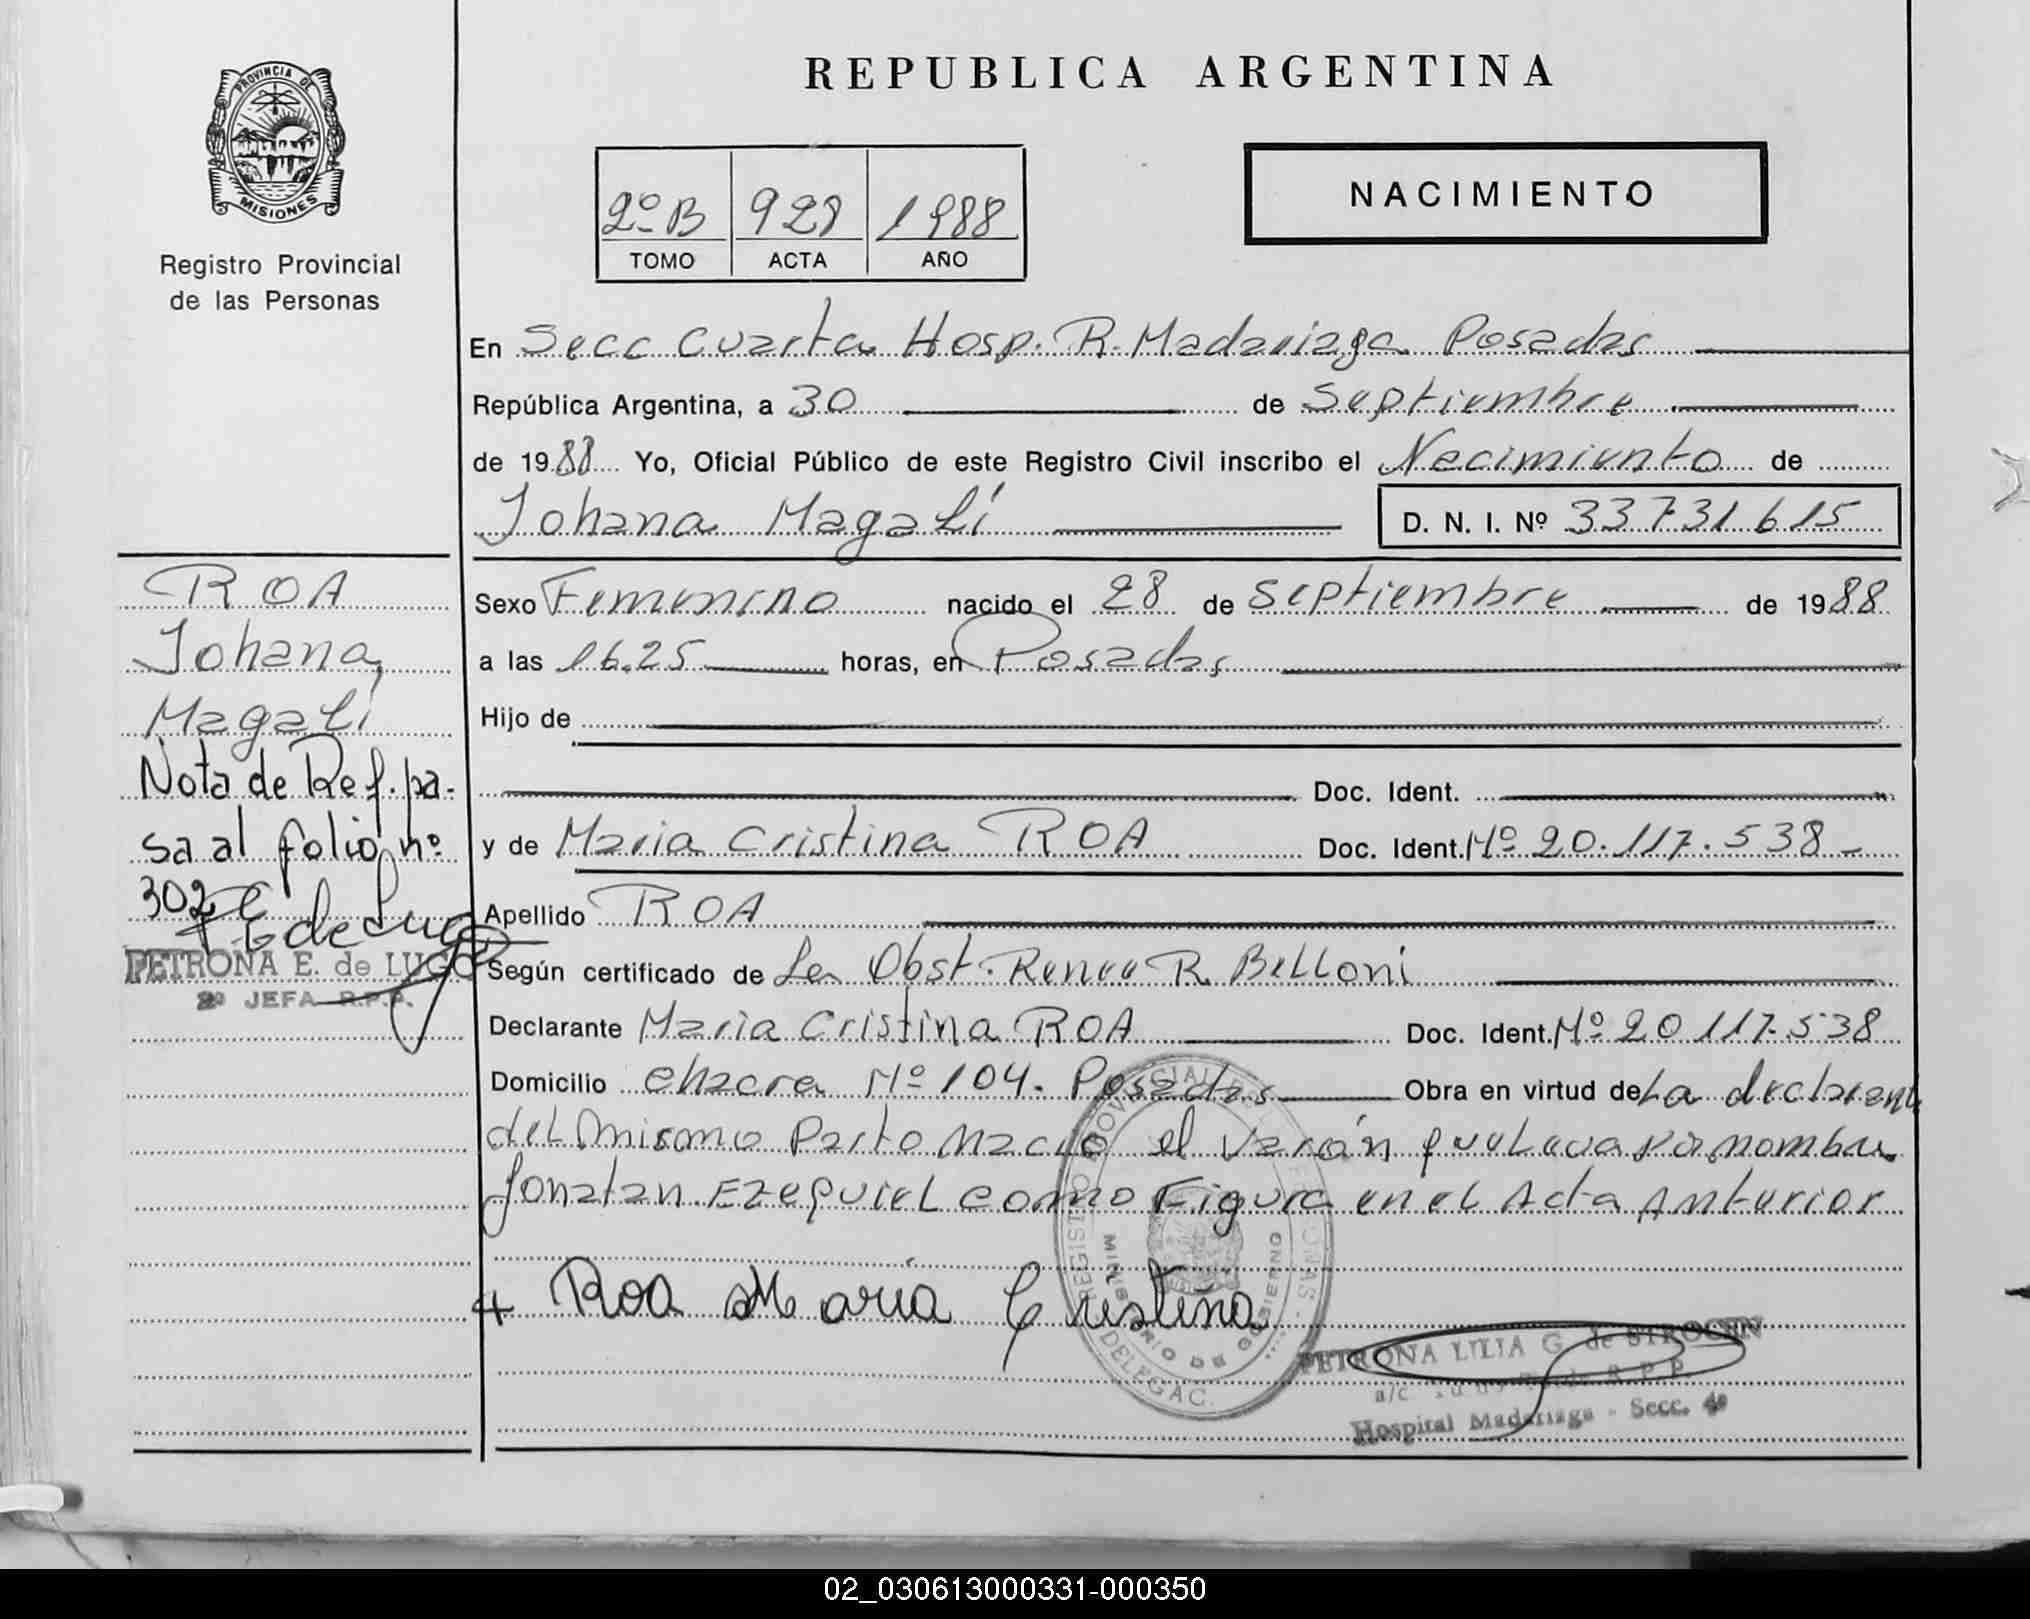 PROVINCIA DE
MISIONES
Registro Provincial
de las Personas
REPUBLICA ARGENTINA
2º B 928 1988
TOMO ACTA AÑO
NACIMIENTO
En Secc Cuarta Hosp. R. Madariaga Posadas
República Argentina, a 30 de Septiembre
de 1988 Yo, Oficial Público de este Registro Civil inscribo el Nacimiento de
Johana Magalí D. N. I. Nº 33731615
Sexo Femenino nacido el 28 de Septiembre de 1988
a las 16.25 horas, en Posadas
Hijo de
Doc. Ident.
y de Maria Cristina ROA Doc. Ident. Nº 20.117.538
Apellido ROA
Según certificado de La Obst. Renee R. Belloni
Declarante Maria Cristina ROA Doc. Ident. Nº 20 117.538
Domicilio chacra Nº 104. Posadas Obra en virtud de La declarante
del mismo Parto Nacio el Varón que Leva por nombre
Jonatan Ezequiel como Figura en el Acta Anterior
Roa Maria Cristina
REGISTRO PROVINCIAL DE LAS PERSONAS
MINISTERIO DE GOBIERNO
DELEGAC.
PETRONA LILIA G. de
a/c R.P.P.
Hospital Madariaga - Secc. 4ª
ROA
Johana
Magalí
Nota de Ref. pa-
sa al folio nº
302
PETRONA E. de LUGO
2ª JEFA R.P.P.
02_030613000331-000350